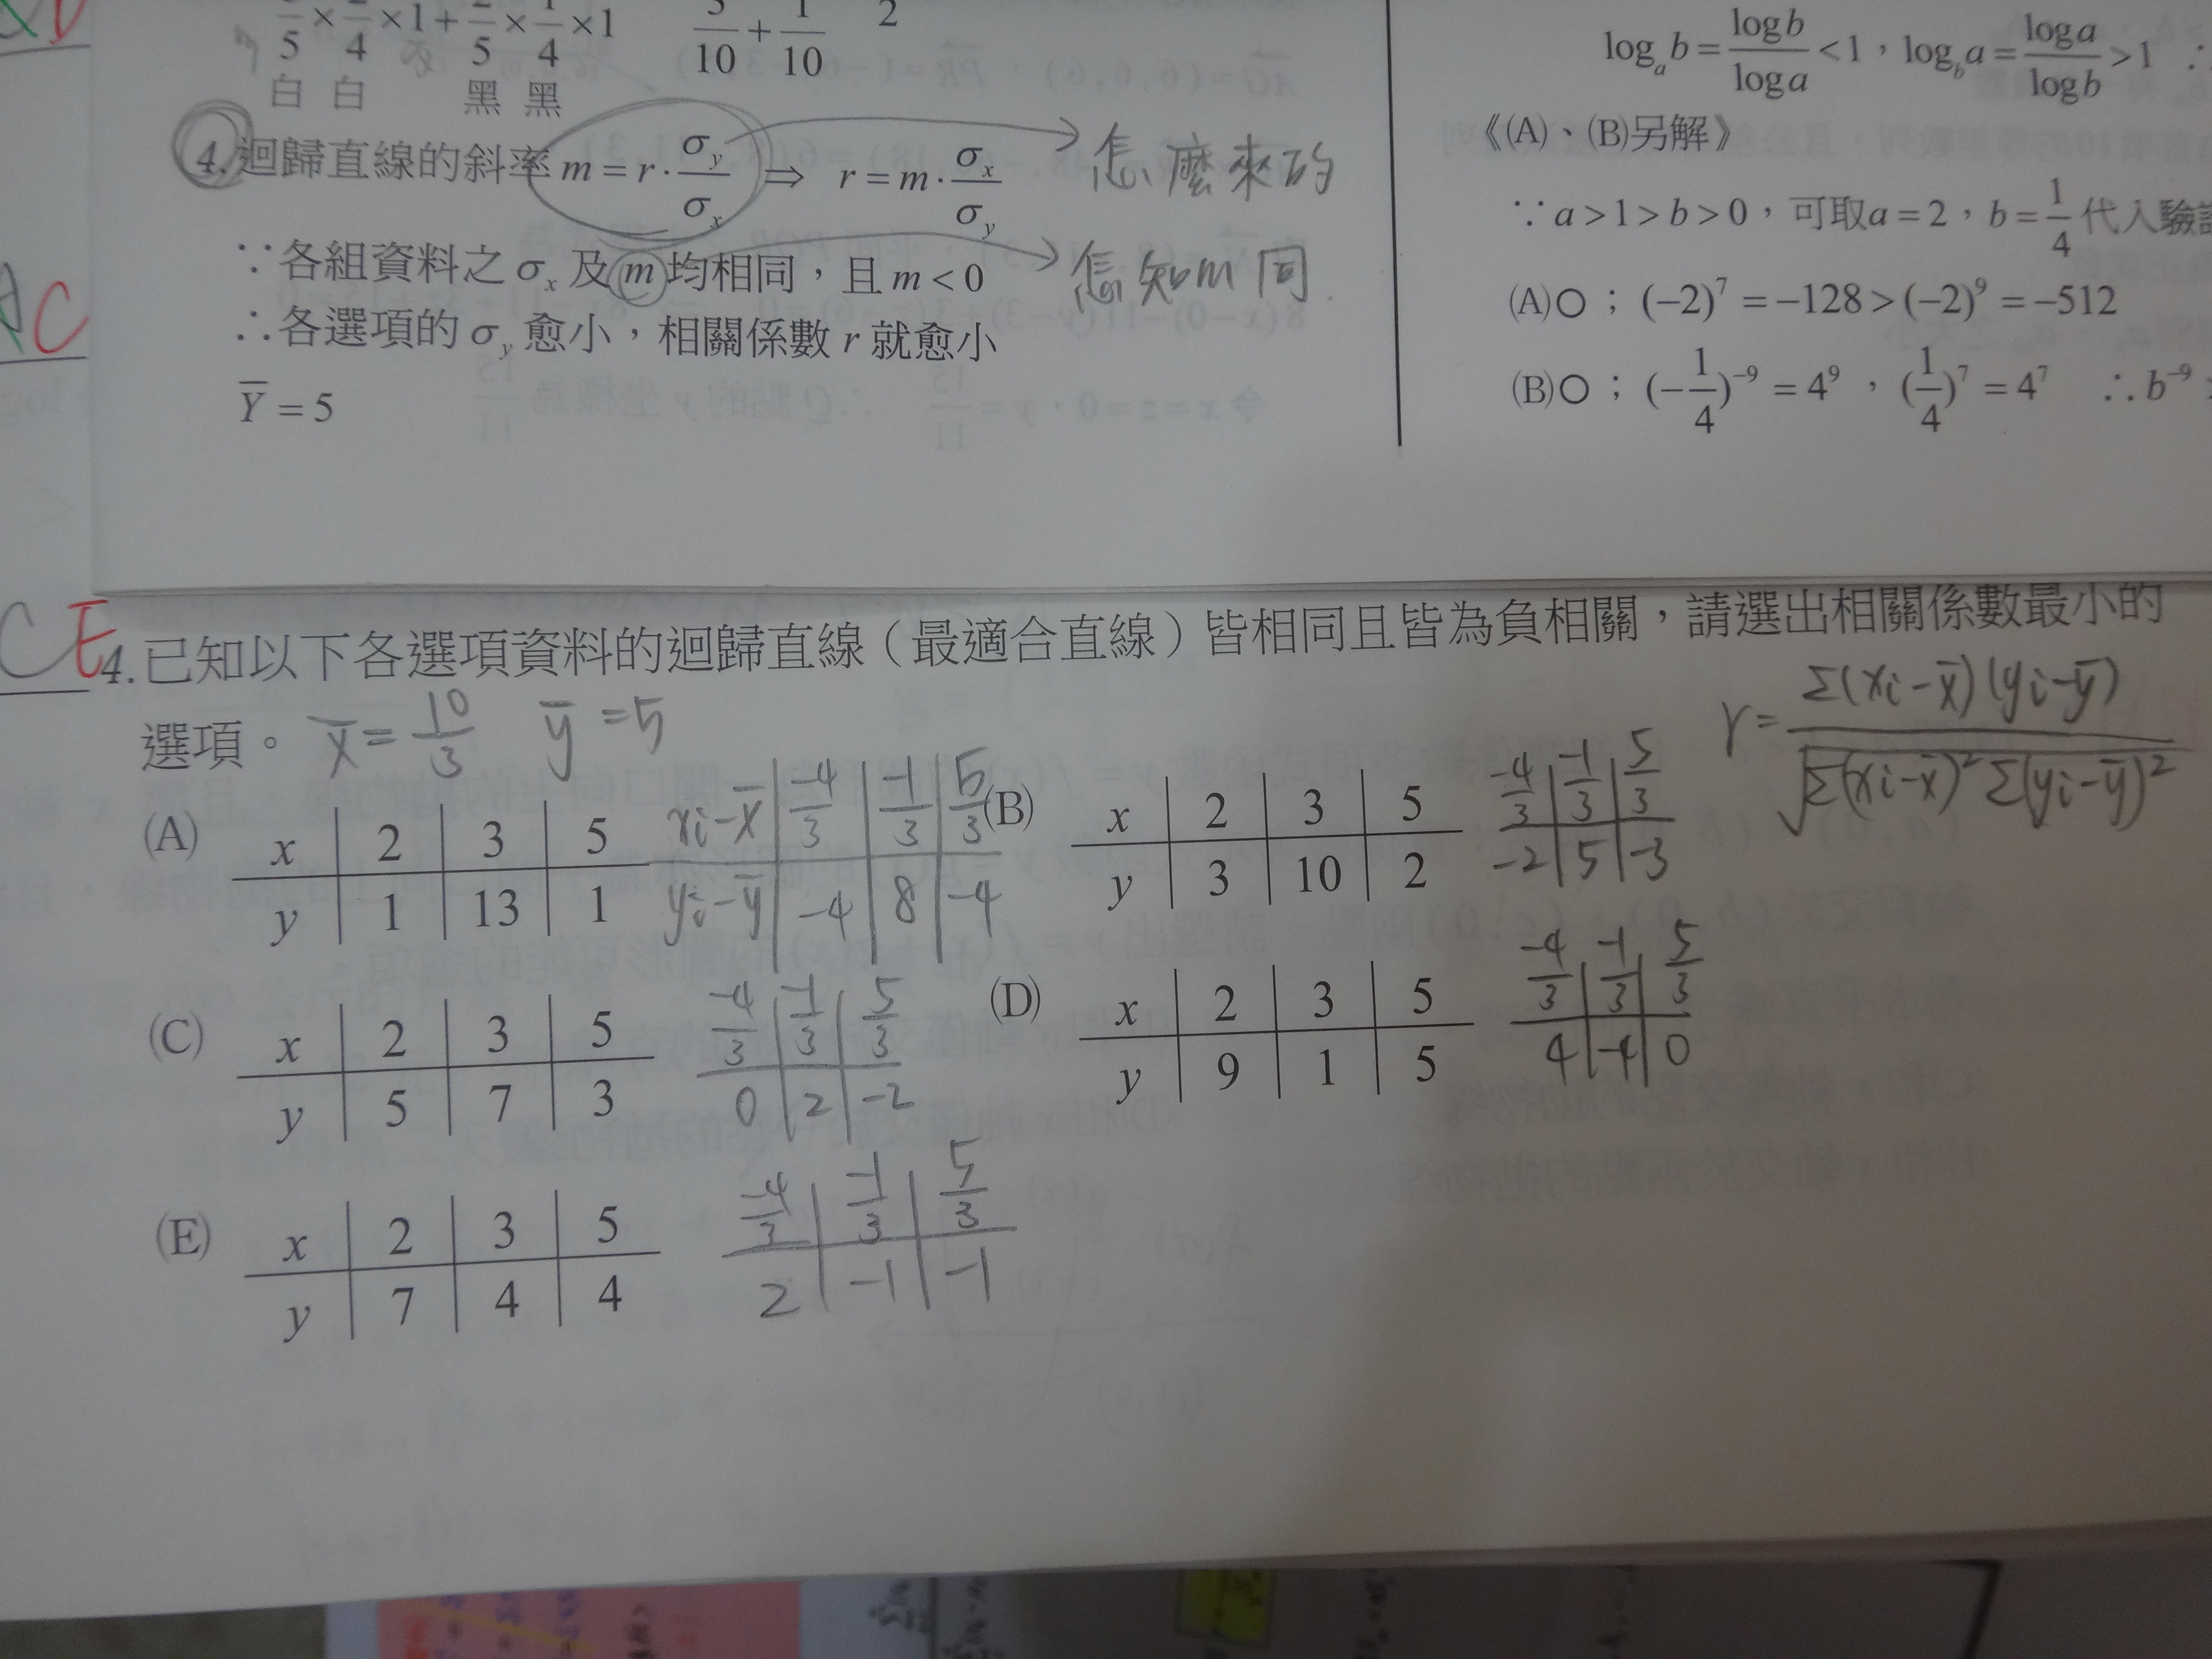 5 × 4 × 1 + 5 × 4 × 1
10 + 10 2
白 白 黑 黑
4. 迴歸直線的斜率 m = r · σy/σx ⇒ r = m · σx/σy
怎麼來的
∵各組資料之 σx 及 m 均相同，且 m < 0
怎知m同
∴各選項的 σy 愈小，相關係數 r 就愈小
Y̅ = 5
logₐb = logb/loga < 1，log_b a = loga/logb > 1
《(A)、(B)另解》
∵ a > 1 > b > 0，可取a = 2，b = 1/4 代入驗
(A)○；(−2)⁷ = −128 > (−2)⁹ = −512
(B)○；(−1/4)⁻⁹ = 4⁹，(1/4)⁷ = 4⁷ ∴ b⁻⁹
AC
CE
4. 已知以下各選項資料的迴歸直線（最適合直線）皆相同且皆為負相關，請選出相關係數最小的
選項。 x̅ = 10/3 y̅ = 5
r = Σ(xi−x̅)(yi−y̅)/√Σ(xi−x̅)²Σ(yi−y̅)²
(A) x 2 3 5
y 1 13 1
xi−x̅ −4/3 −1/3 5/3
yi−y̅ −4 8 −4
(B) x 2 3 5
y 3 10 2
−4/3 −1/3 5/3
−2 5 −3
(C) x 2 3 5
y 5 7 3
−4/3 −1/3 5/3
0 2 −2
(D) x 2 3 5
y 9 1 5
−4/3 −1/3 5/3
4 −4 0
(E) x 2 3 5
y 7 4 4
−4/3 −1/3 5/3
2 −1 −1